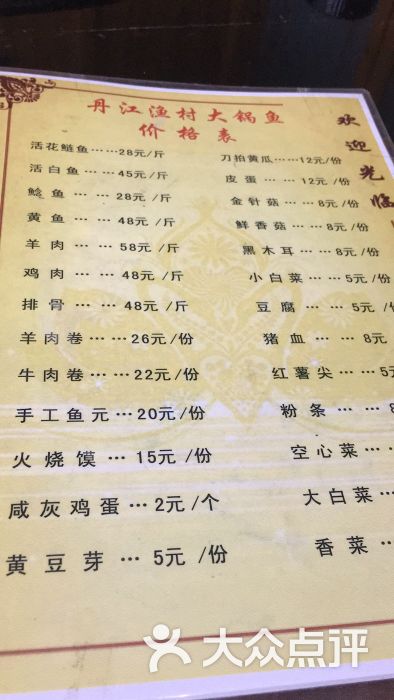 丹江渔村大锅鱼
价格表
欢迎光临
活花鲢鱼……28元/斤
活白鱼……45元/斤
鲶鱼……28元/斤
黄鱼……48元/斤
羊肉……58元/斤
鸡肉……48元/斤
排骨……48元/斤
羊肉卷…26元/份
牛肉卷…22元/份
手工鱼元…20元/份
火烧馍…15元/份
咸灰鸡蛋…2元/个
黄豆芽…5元/份
刀拍黄瓜……12元/份
皮蛋……12元/份
金针菇……8元/份
鲜香菇……8元/份
黑木耳…8元/份
小白菜…5元/份
豆腐…5元/
猪血…8元
红薯尖…5
粉条…8
空心菜…
大白菜…
香菜…
大众点评